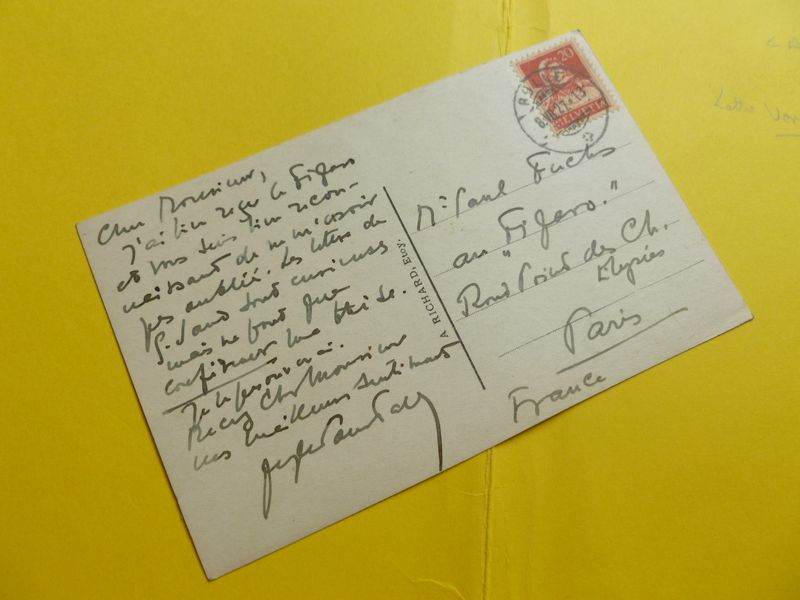 Cher Monsieur,
J'ai bien reçu le Figaro
et vous suis bien recon-
naissant de ne m'avoir
pas oublié. Les lettres de
G. Sand sont curieuses
mais ne font que
confirmer ma thèse.
Je le
Recevez Cher Monsieur
mes meilleurs sentiments
A RICHARD, Evoy.
20
HELVETIA
8.III.27.-13
Mr. Paul Fuchs
au "Figaro."
Rond Point des Ch.
Elysées
Paris
France
Lettre